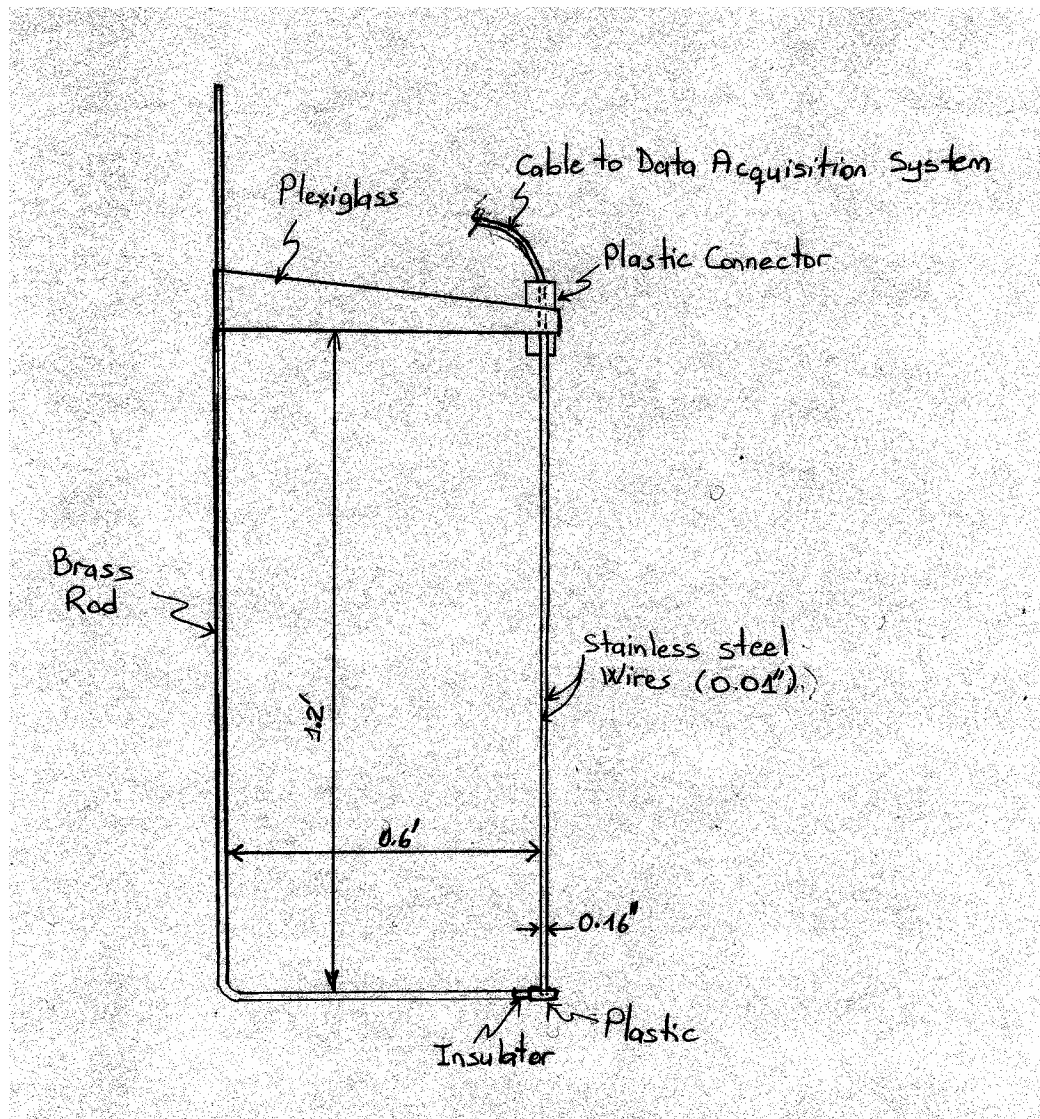 Cable to Data Acquisition System
Plexiglass
Plastic Connector
Brass
Rod
Stainless steel
Wires (0.01")
1.2'
0.6'
0.16"
Plastic
Insulator